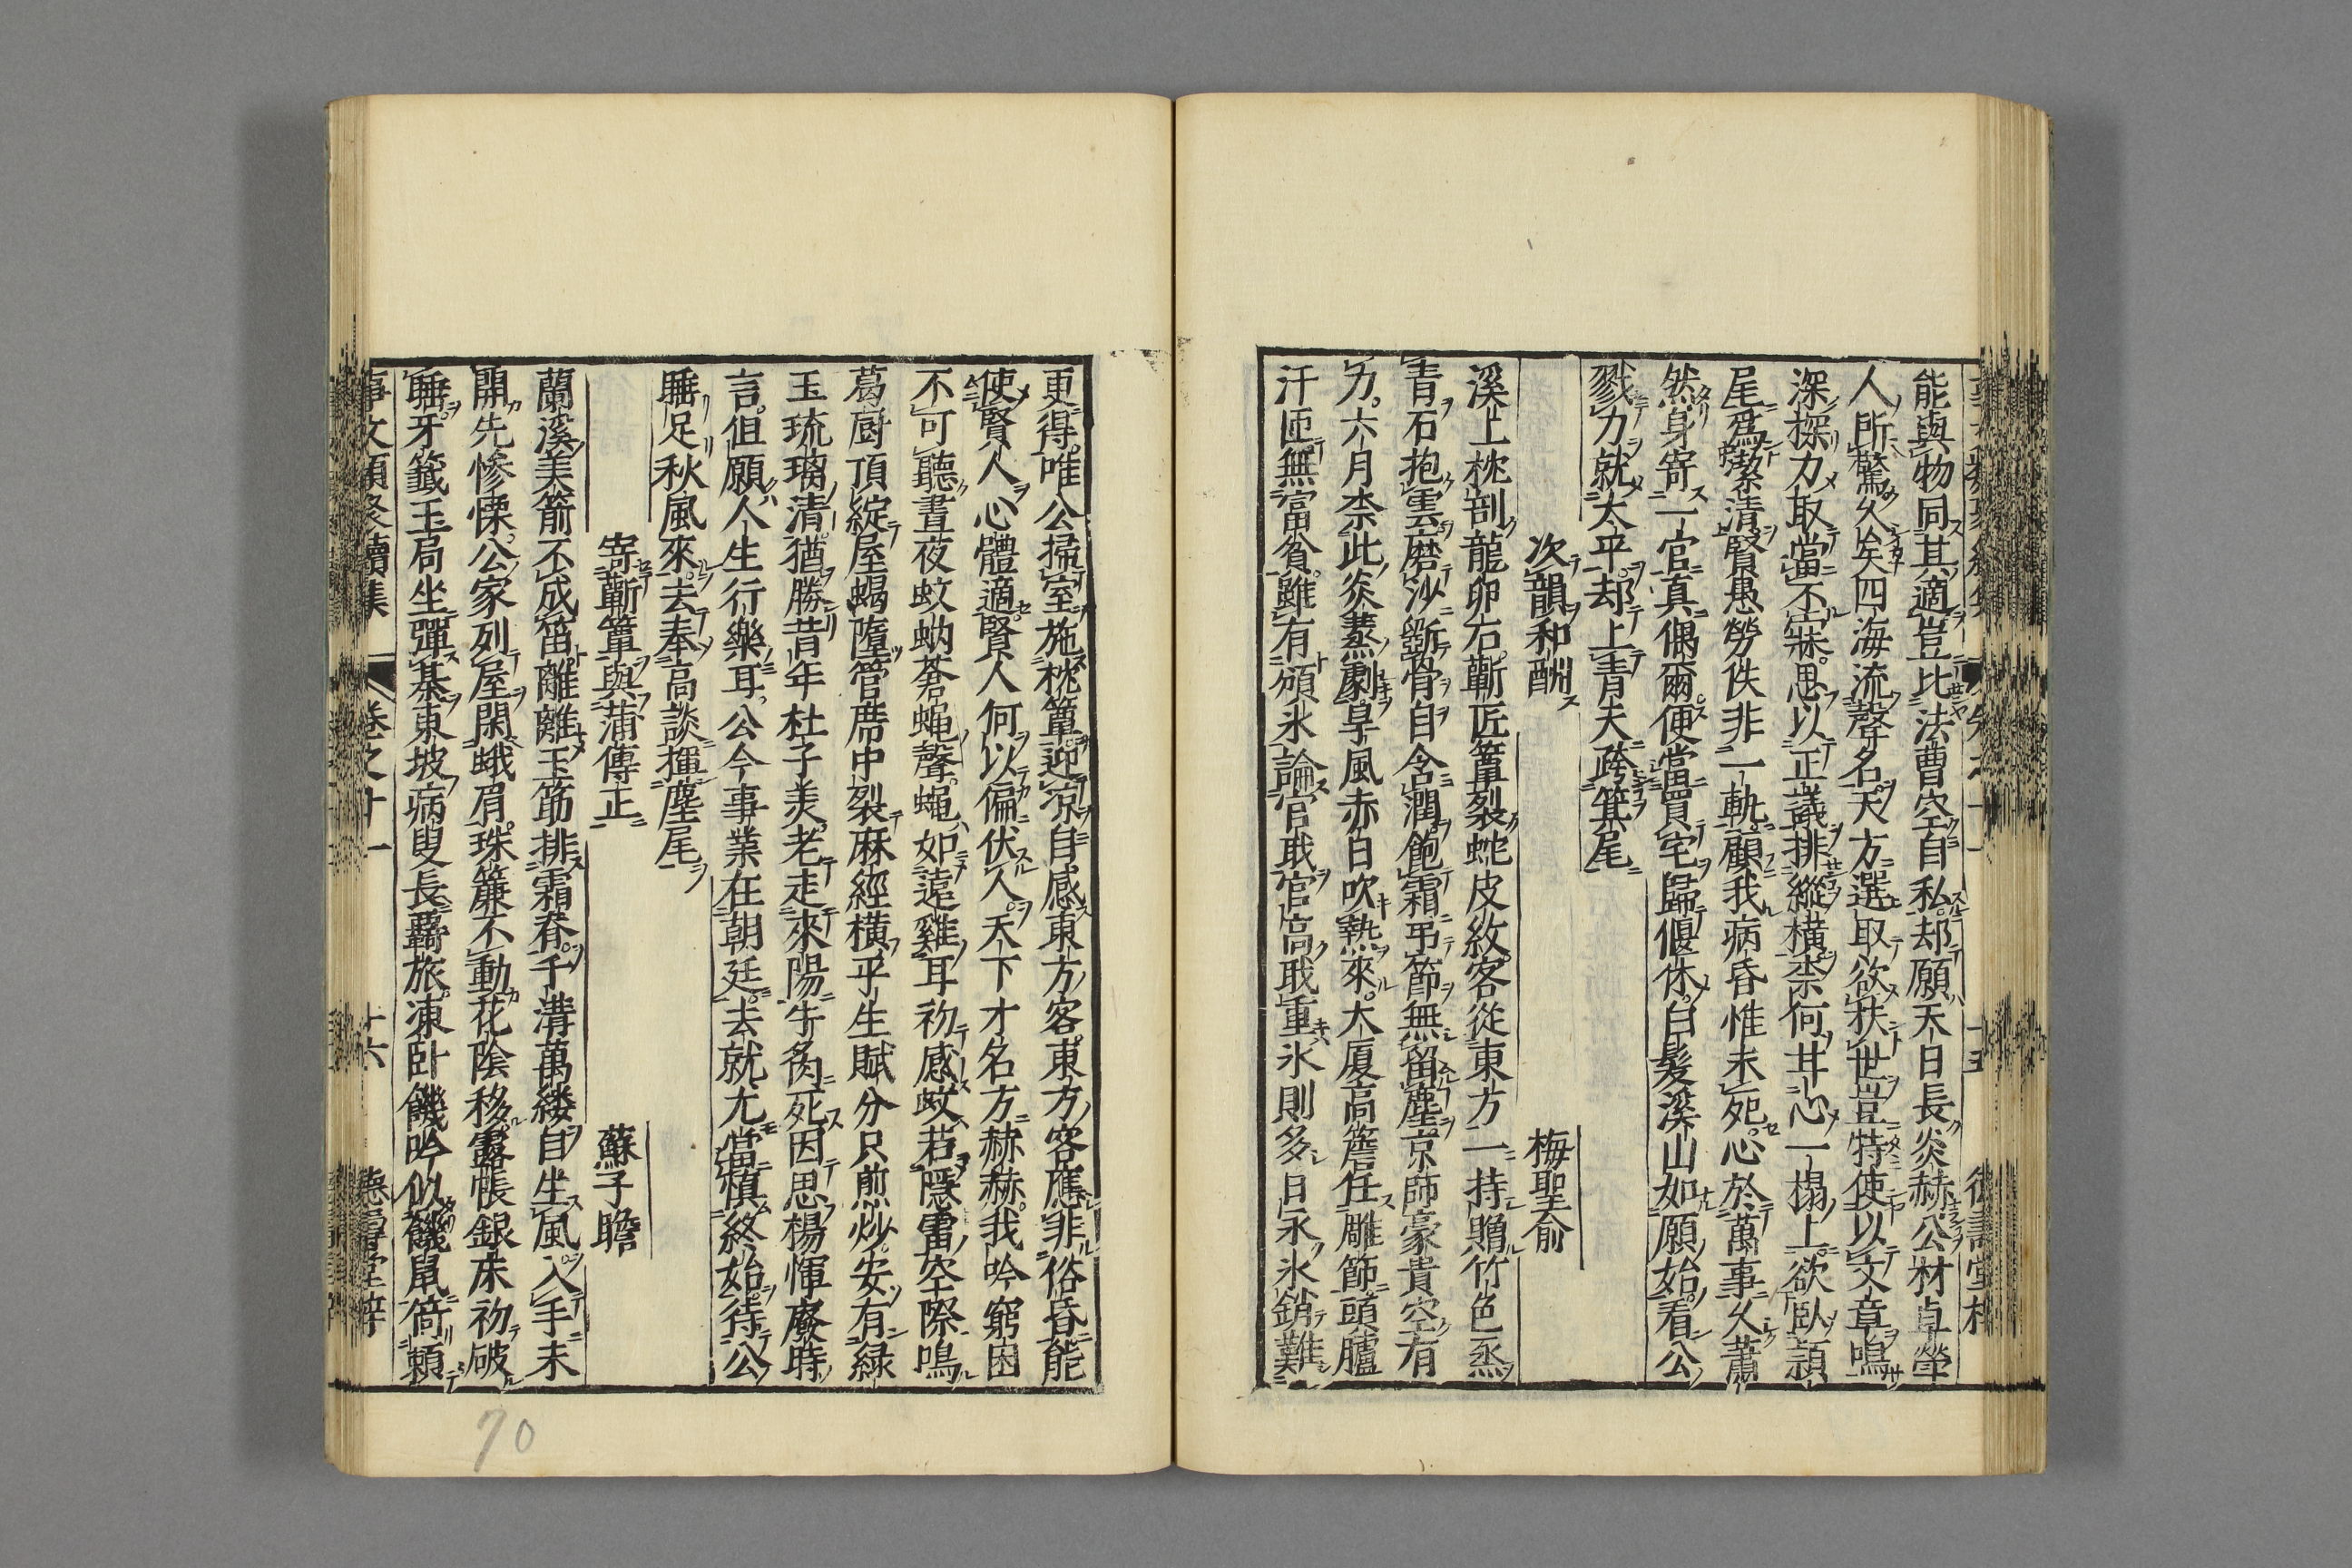 能與物同其適豈比法曹空自私却願天日長炎赫公材卓犖
人所驚久矣四海流聲名天方選取欲扶世豈特使以文章鳴
深探力取當不寐思以正議排縱橫柰何甘心一榻上欲臥潁
尾爲潔清賢愚勞佚非一軌顧我病昏惟未死心於萬事久蕭
然身寄一官真偶爾便當買宅歸偃休白髮溪山如願始看公
戮力就太平却上青天跨箕尾
次韻和酬
梅聖俞
溪上枕剖龍卵石蘄匠簟裂蛇皮紋客從東方一持贈竹色烝
青石抱雲磨沙斵骨自含潤飽霜吊節無留塵京師豪貴空有
力六月柰此炎蒸劇皁風赤日吹熱來大厦高簷任雕飾頭臚
汗匝無富貧雖有頒氷論官戝官高戢重氷則多日永氷銷難
更得唯公掃室施枕簟迎凉自感東方客東方客應非俗昏能
使賢人心體適賢人何以偏伏人天下才名方赫赫我吟窮困
不可聽晝夜蚊蚋蒼蠅聲蠅如遠雞耳初感蚊若隱雷空際鳴
葛厨頂綻屋蝎墮管席中裂麻經横乎生賦分只煎炒安有緑
玉琉璃清猶勝昔年杜子美老走來陽牛炙死因思楊惲廢時
言但願人生行樂耳公今事業在朝廷去就尤當慎終始待公
睡足秋風來去奉高談揮塵尾
寄蘄簟與蒲傳正
蘇子瞻
蘭溪美箭不成笛離離玉筯排霜脊千溝萬縷自坐風入手未
開先惨慄公家列屋閑蛾眉珠簾不動花陰移霧帳銀床初破
睡牙籤玉局坐彈棊東坡病叟長羇旅凍卧饑吟似饑鼠筒頼
事文類聚續集
卷之十一
十六